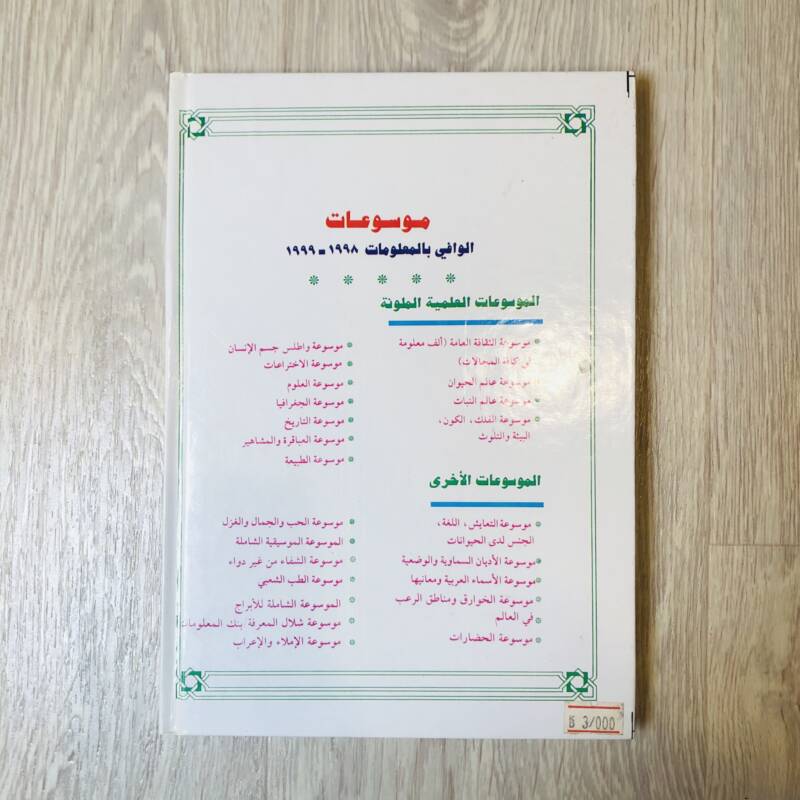 موسوعات
الوافي بالمعلومات ١٩٩٨ - ١٩٩٩
الموسوعات العلمية الملونة
موسوعة الثقافة العامة (ألف معلومة
في كافة المجالات)
موسوعة عالم الحيوان
موسوعة عالم النبات
موسوعة الفلك، الكون،
البيئة والتلوث
موسوعة واطلس جسم الإنسان
موسوعة الاختراعات
موسوعة العلوم
موسوعة الجغرافيا
موسوعة التاريخ
موسوعة العباقرة والمشاهير
موسوعة الطبيعة
الموسوعات الأخرى
موسوعة التعايش، اللغة،
الجنس لدى الحيوانات
موسوعة الأديان السماوية والوضعية
موسوعة الأسماء العربية ومعانيها
موسوعة الخوارق ومناطق الرعب
في العالم
موسوعة الحضارات
موسوعة الحب والجمال والغزل
الموسوعة الموسيقية الشاملة
موسوعة الشفاء من غير دواء
موسوعة الطب الشعبي
الموسوعة الشاملة للأبراج
موسوعة شلال المعرفة /بنك المعلومات
موسوعة الإملاء والإعراب
3/000